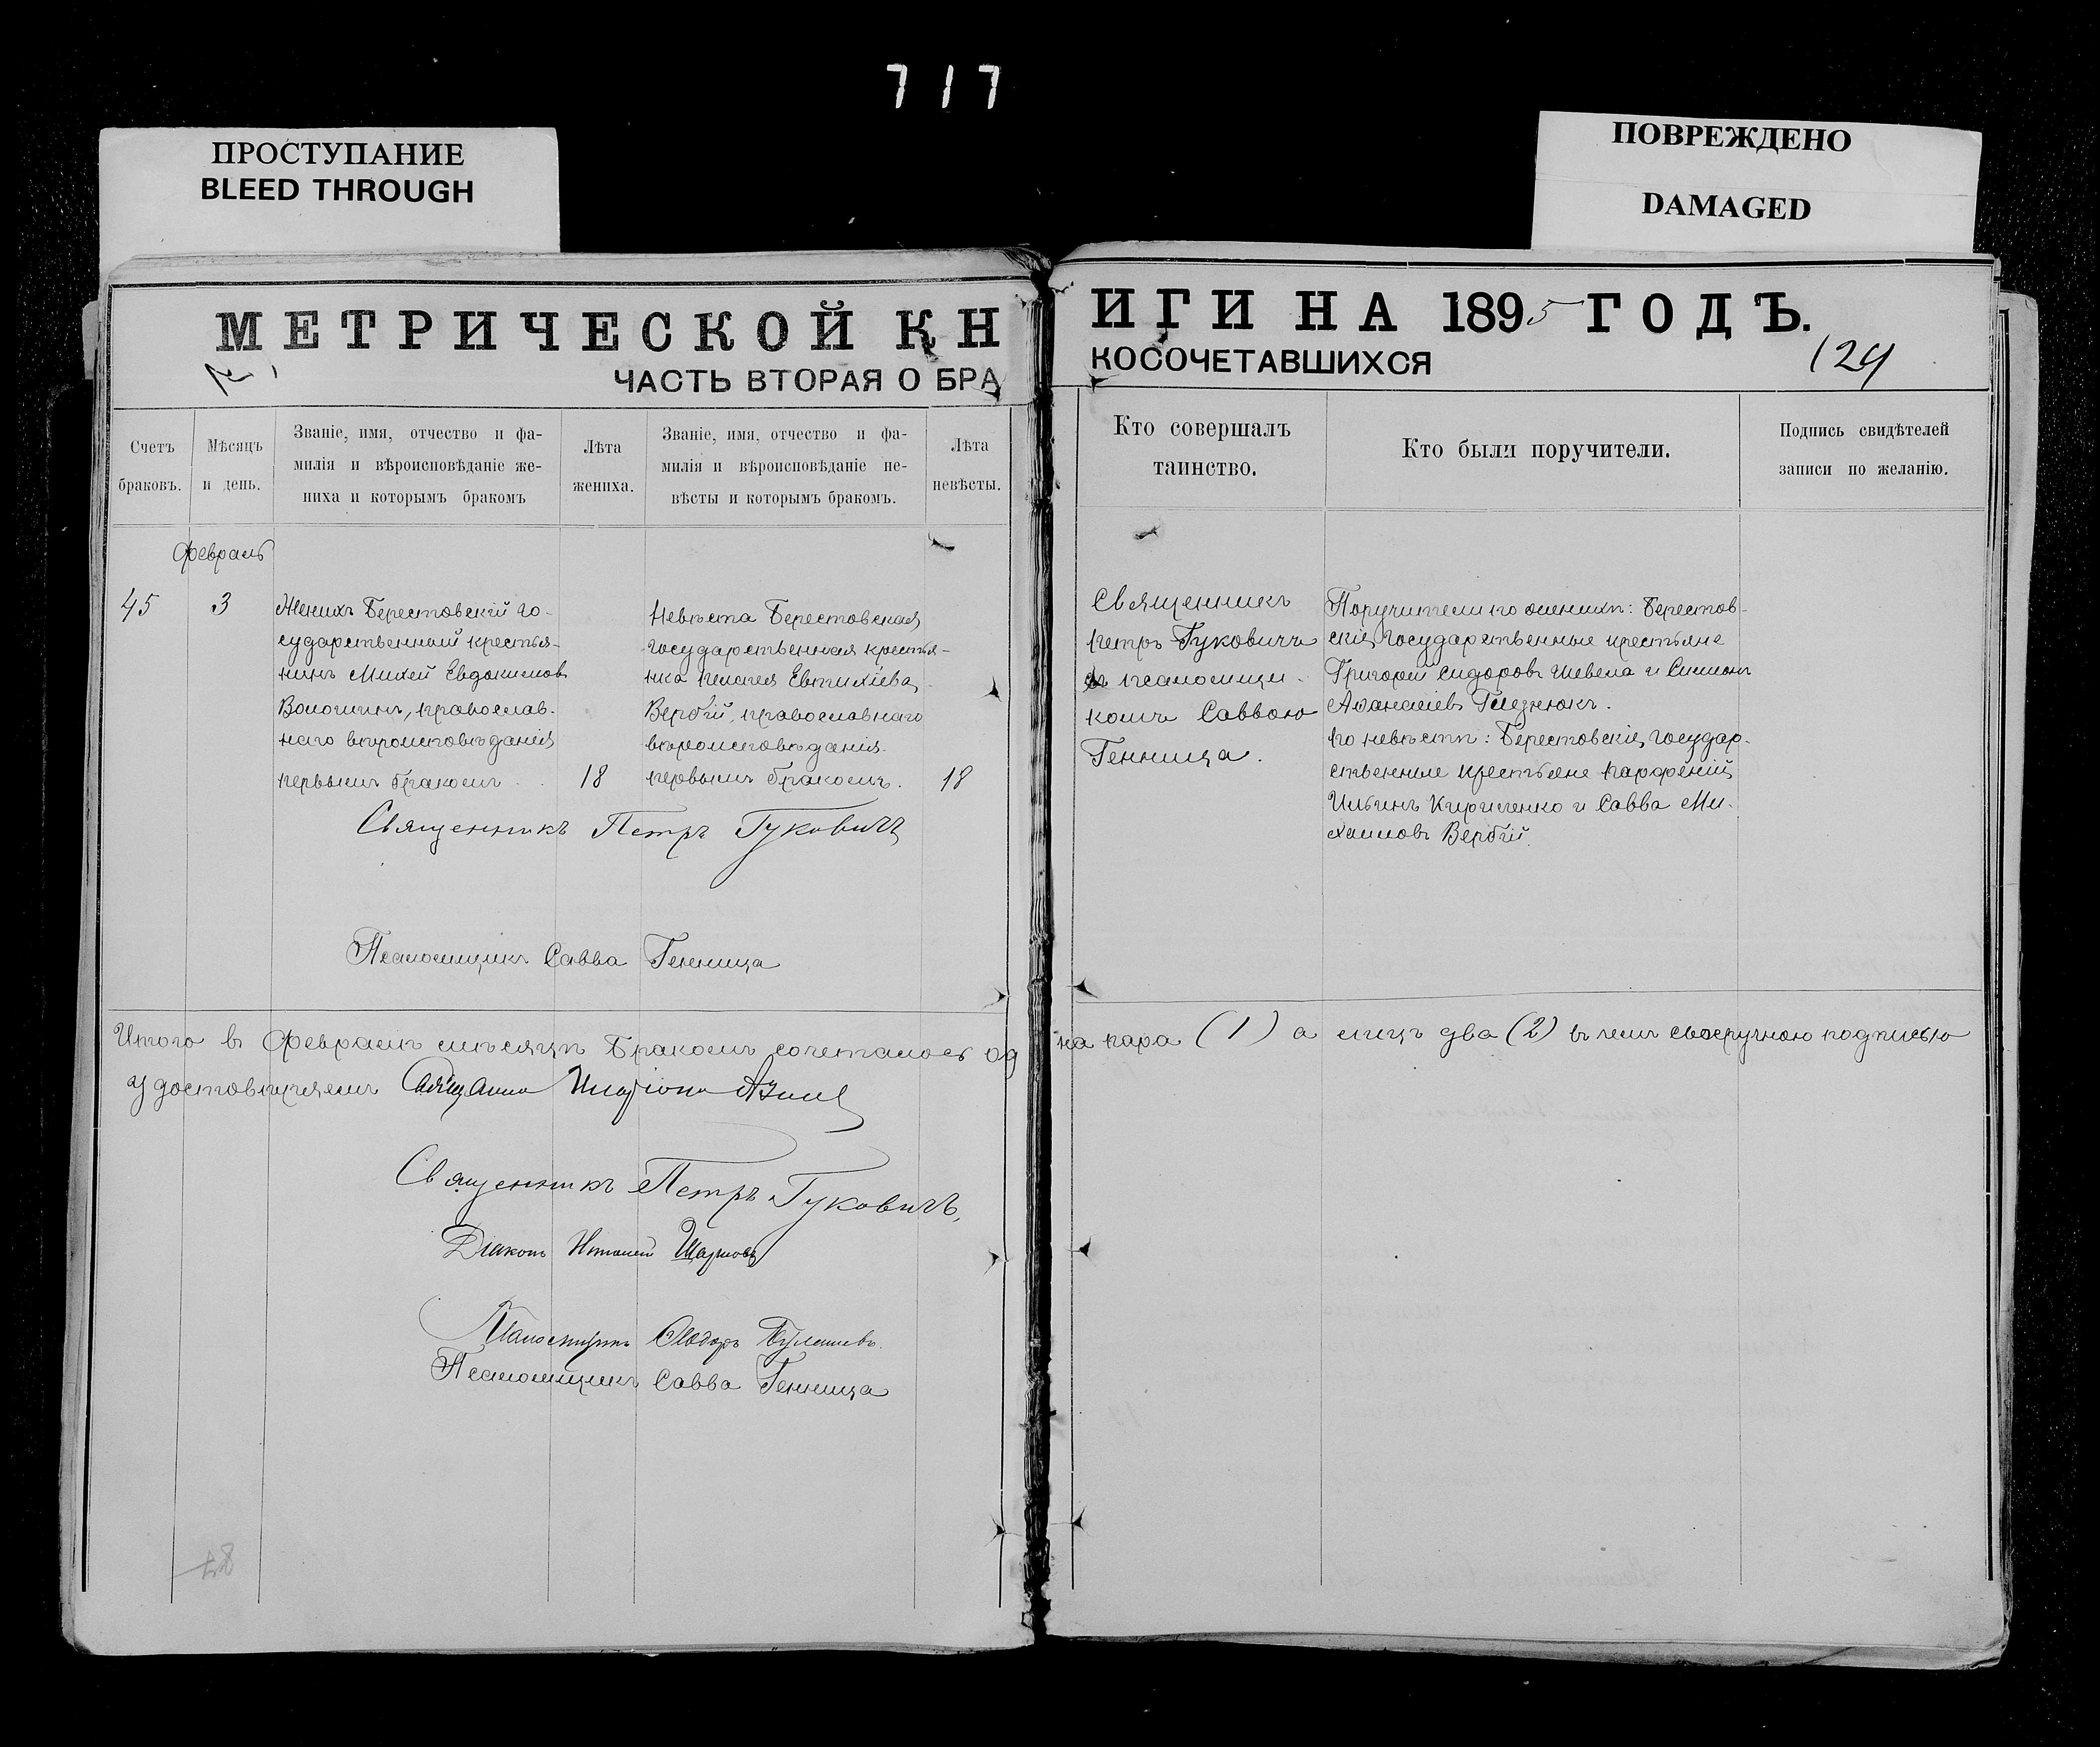 717
ПРОСТУПАНИЕ
BLEED THROUGH
ПОВРЕЖДЕНО
DAMAGED
МЕТРИЧЕСКОЙ КН
ИГИ НА 1895 ГОДЪ.
ЧАСТЬ ВТОРАЯ О БРА
КОСОЧЕТАВШИХСЯ
124
Счетъ
браковъ.
Мѣсяцъ
и день.
Званіе, имя, отчество и фа-
милія и вѣроисповѣданіе же-
ниха и которымъ бракомъ
Лѣта
жениха.
Званіе, имя, отчество и фа-
милія и вѣроисповѣданіе не-
вѣсты и которымъ бракомъ.
Лѣта
невѣсты.
Кто совершалъ
таинство.
Кто были поручители.
Подпись свидѣтелей
записи по желанію.
Февраль
45
3
Женихъ Берестовскій го-
сударственный крестья-
нинъ Михей Евдокимовъ
Волошинъ, православ-
наго вѣроисповѣданія
первымъ бракомъ
18
Невѣста Берестовская
государственная крестья-
нка Евтихіева
Вербій, православнаго
вѣроисповѣданія
первымъ бракомъ.
18
Священникъ
Петръ Гуковичъ
съ псаломщи-
комъ Саввою
Генница.
Поручители по женихѣ: Берестов-
скіе государственные крестьяне
Григорій Сидоровъ Шевела и Симеонъ
Афанасіевъ Глезнюкъ.
по невѣстѣ: Берестовскіе государ-
ственные крестьяне Парфеній
Ильинъ Кириленко и Савва Ми-
хаиловъ Вербій.
Священникъ Петръ Гуковичъ
Псаломщикъ Савва Генница
Итого въ Февралѣ мѣсяцѣ бракомъ сочеталось од
на пара (1) а лицъ два (2) въ чемъ своеручною подписью
удостовѣряемъ Священникъ Иларіонъ
Священникъ Петръ Гуковичъ,
Діаконъ
Псаломщикъ Ѳеодоръ
Псаломщикъ Савва Генница
48